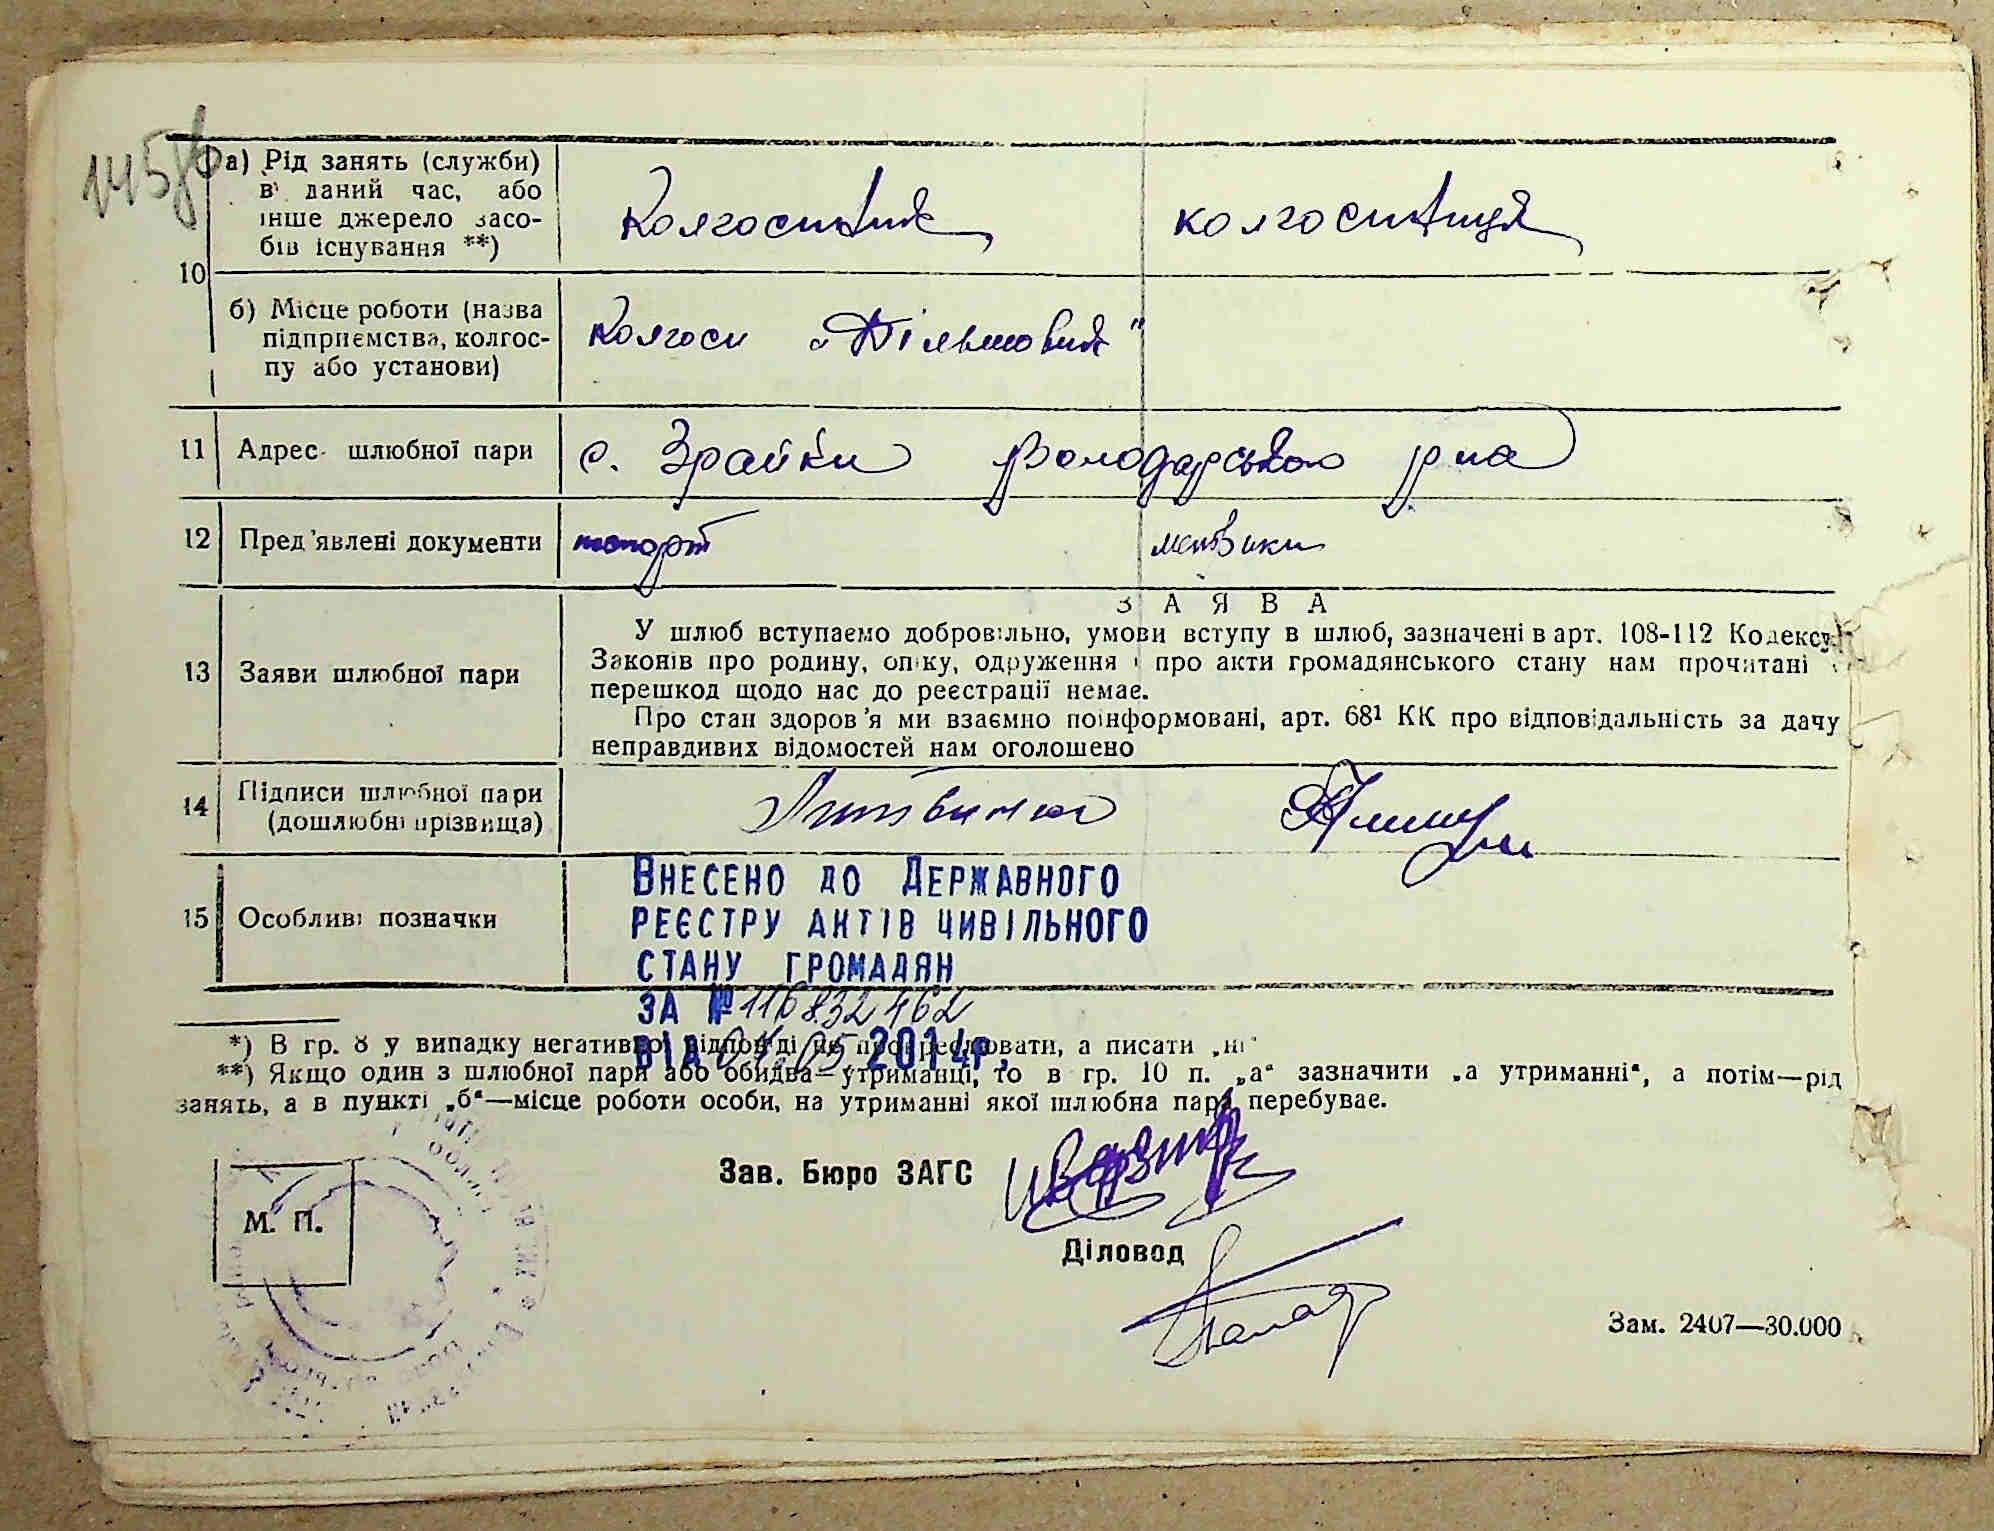 145зв
10
а) Рід занять (служби)
в даний час, або
інше джерело засо-
бів існування **)
Колгоспник
колгоспниця
б) Місце роботи (назва
підприємства, колгос-
пу або установи)
Колгосп „Більшовик"
11 Адрес шлюбної пари
с. Зрайки Володарського р-на
12 Пред'явлені документи
паспорт
метрики
13 Заяви шлюбної пари
ЗАЯВА
У шлюб вступаємо добровільно, умови вступу в шлюб, зазначені в арт. 108-112 Кодексу
Законів про родину, опіку, одруження і про акти громадянського стану нам прочитані
перешкод щодо нас до реєстрації немає.
Про стан здоров'я ми взаємно поінформовані, арт. 68¹ КК про відповідальність за дачу
неправдивих відомостей нам оголошено
14 Підписи шлюбної пари
(дошлюбні прізвища)
15 Особливі позначки
Внесено до Державного
реєстру актів цивільного
стану громадян
за № 116832462
від 07.05.2014р.
*) В гр. 8 у випадку негативної відповіді не прокреслювати, а писати „ні"
**) Якщо один з шлюбної пари або обидва—утриманці, то в гр. 10 п. „а" зазначити „а утриманні", а потім—рід
занять, а в пункті „б"—місце роботи особи, на утриманні якої шлюбна пара перебуває.
М. П.
Зав. Бюро ЗАГС
Діловод
Зам. 2407—30.000